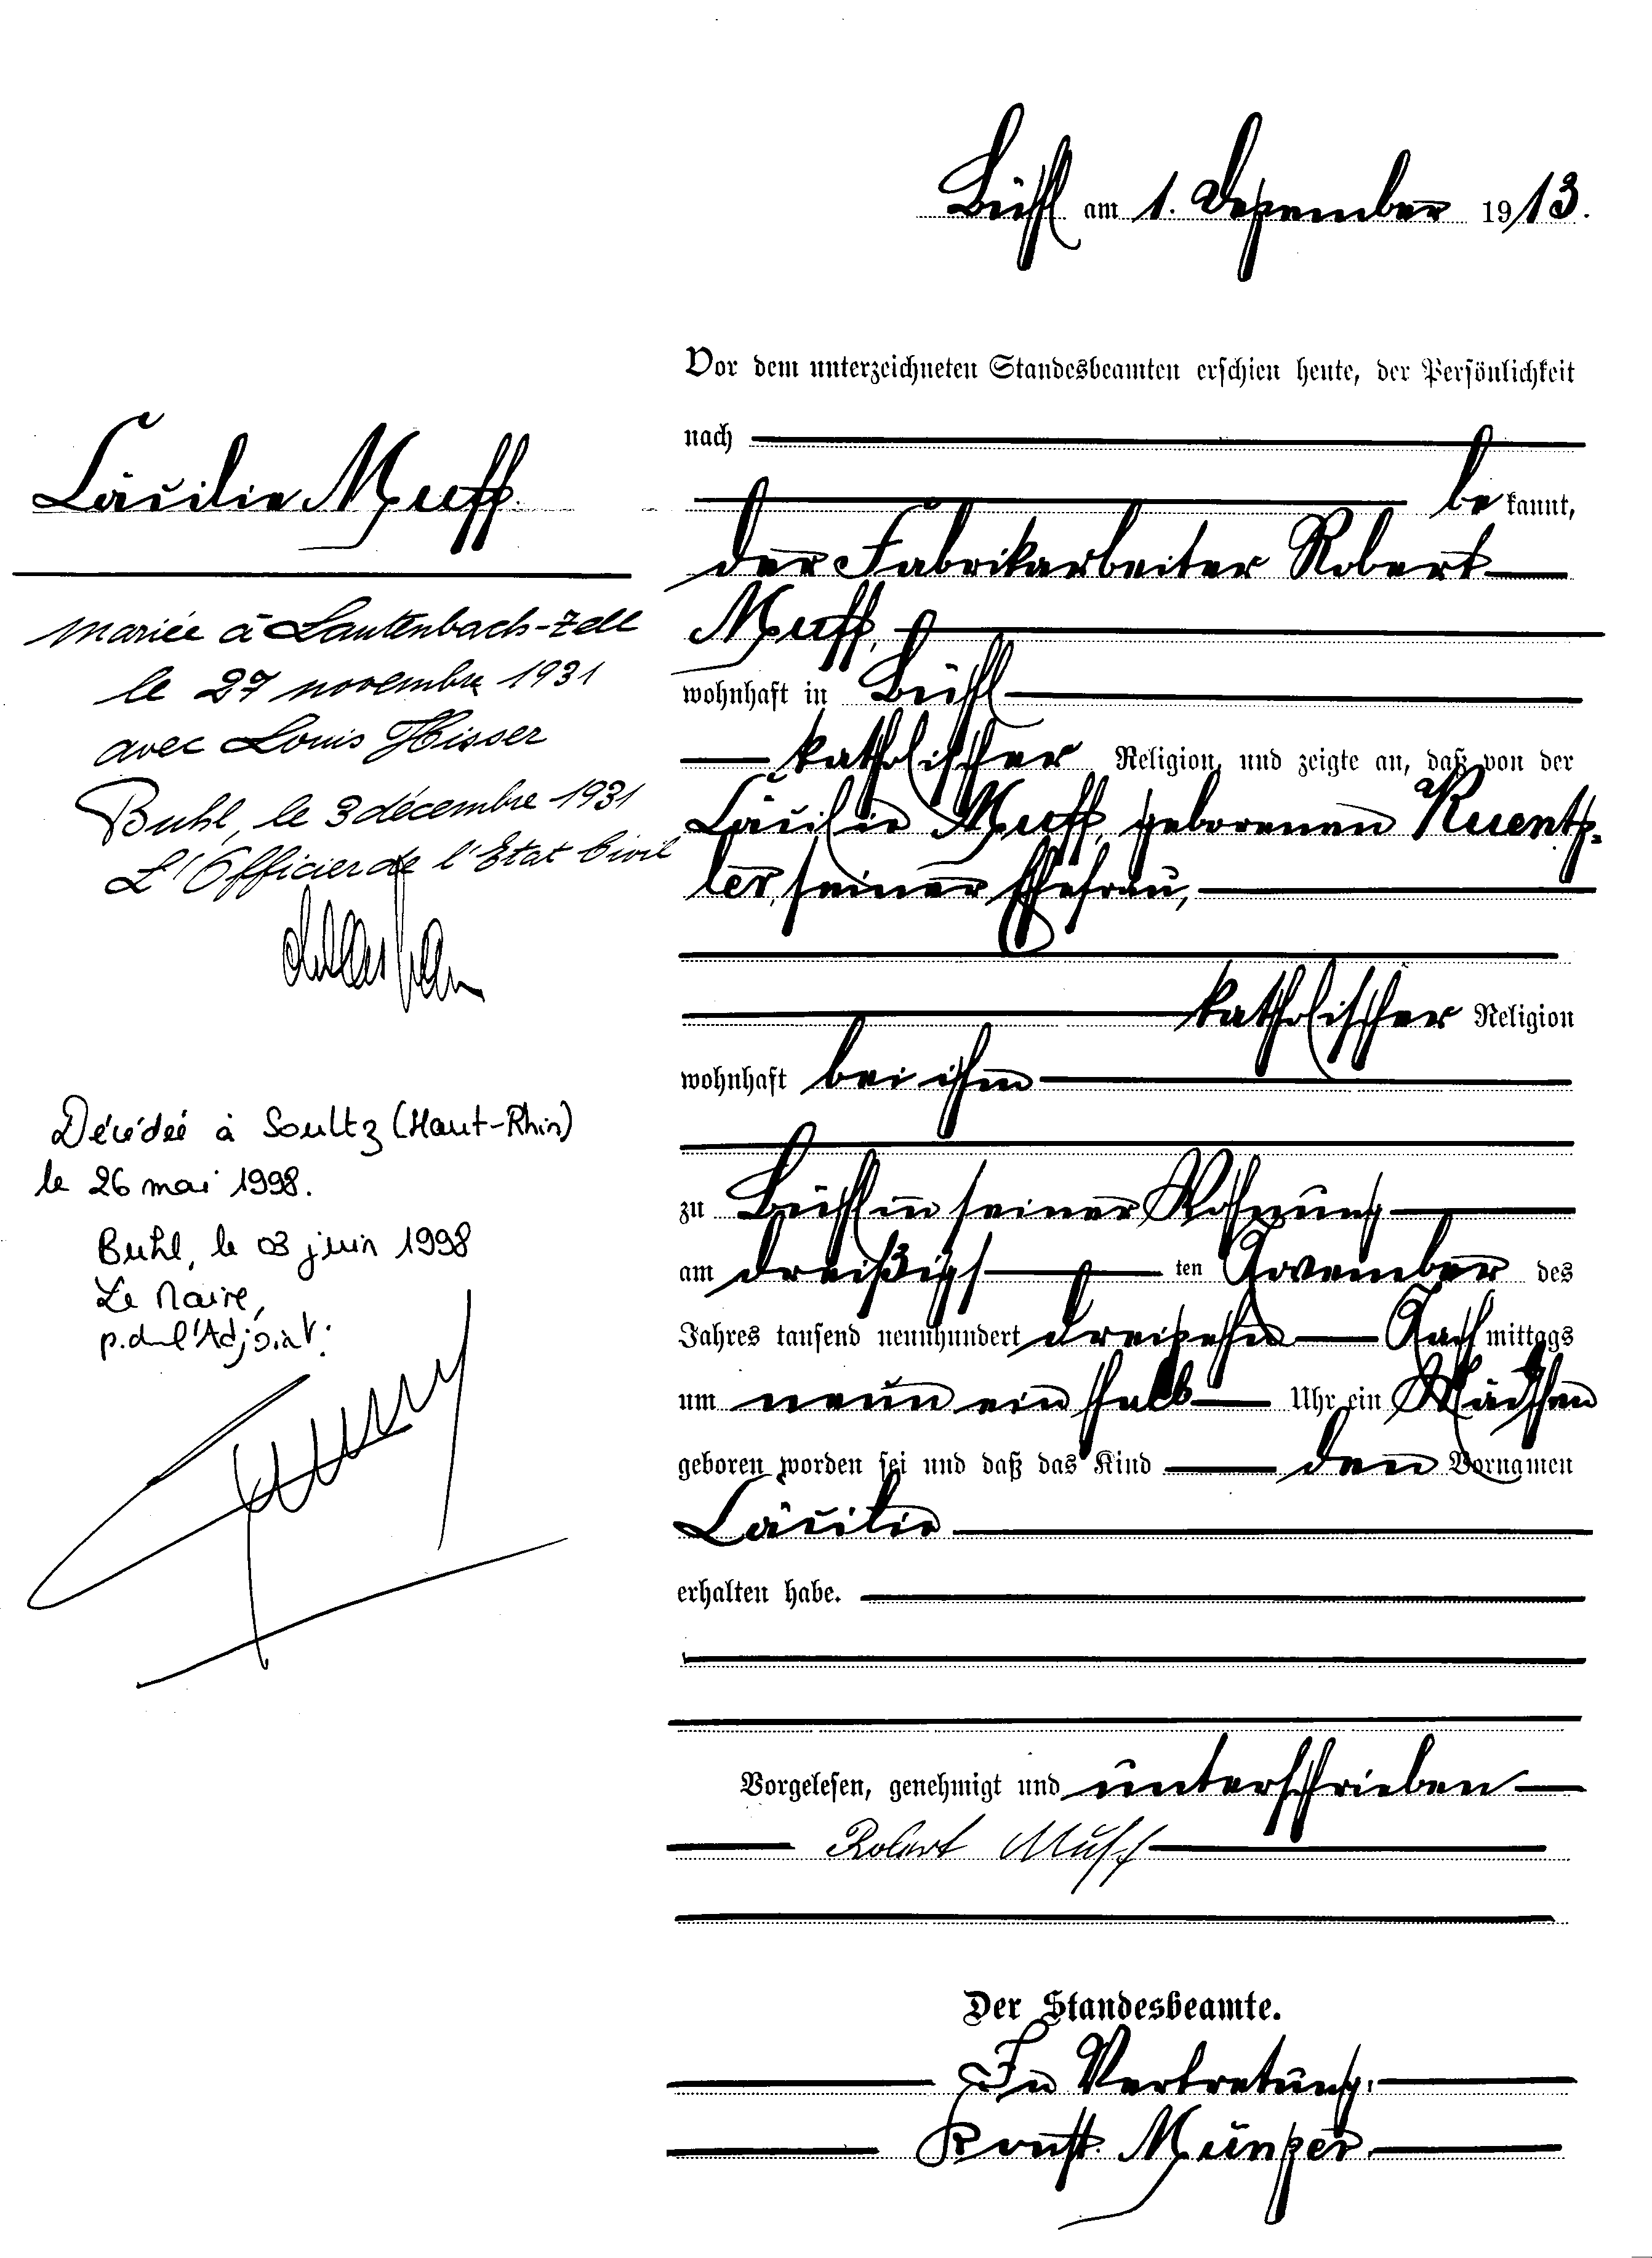 Bühl am 1. Dezember 1913.
Vor dem unterzeichneten Standesbeamten erschien heute, der Persönlichkeit
nach
bekannt,
der Fabrikarbeiter Robert
Muff,
wohnhaft in Bühl
katholischer Religion, und zeigte an, daß von der
Cäcilie Muff, geborenen Kuentz-
ler, seiner Ehefrau,
katholischer Religion
wohnhaft bei ihm
zu Bühl in seiner Wohnung
am dreißigsten November des
Jahres tausend neunhundert dreizehn Nachmittags
um neun ein halb Uhr ein Mädchen
geboren worden sei und daß das Kind den Vornamen
Cäcilie
erhalten habe.
Vorgelesen, genehmigt und unterschrieben
Robert Muff
Der Standesbeamte.
In Vertretung.
Const. Münzer.
Cäcilie Muff.
mariée à Lautenbach-Zell
le 27 novembre 1931
avec Louis Hisser
Buhl, le 3 décembre 1931
L'Officier de l'Etat Civil
Décédée à Soultz (Haut-Rhin)
le 26 mai 1998.
Buhl, le 03 juin 1998
Le Maire,
p.del l'Adjoint: